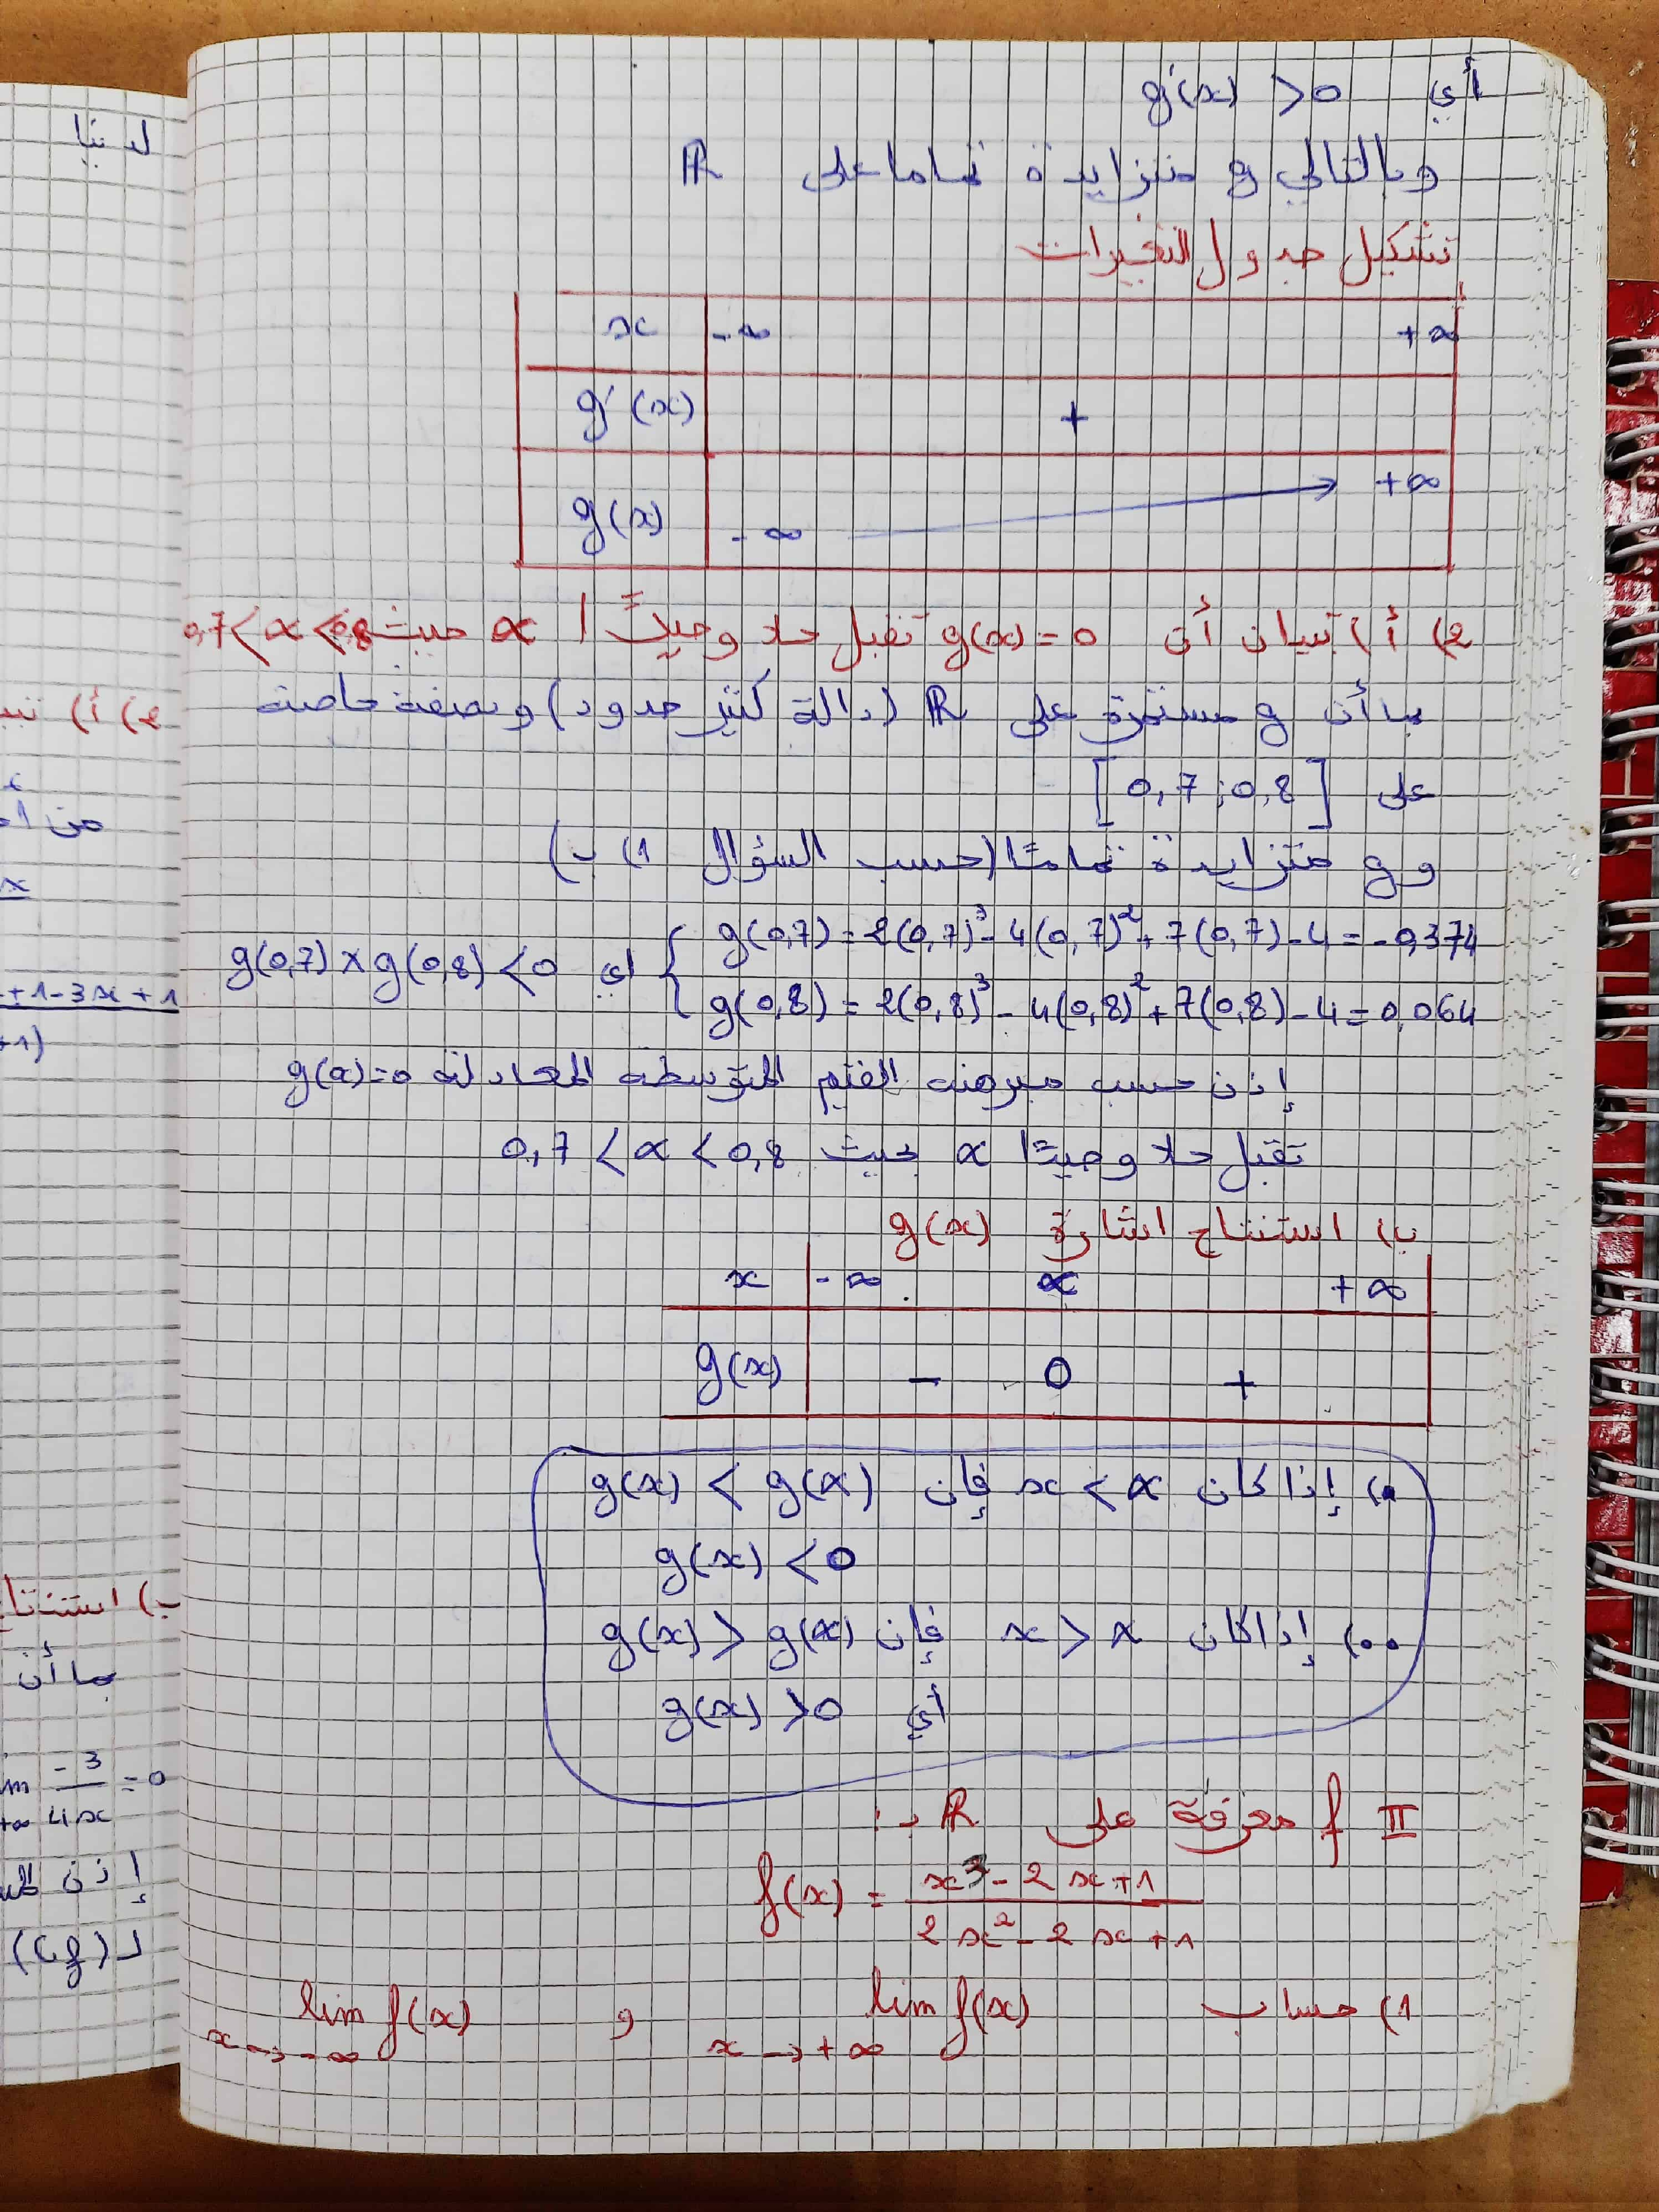 أي g'(x) > 0
وبالتالي g متزايدة تماما على ℝ
تشكيل جدول التغيرات
x -∞ +∞
g'(x) +
g(x) -∞ +∞
2) أ) تبيان أن g(x) = 0 تقبل حلا وحيدًا α حيث 0,7 < α < 0,8
بما أن g مستمرة على ℝ (دالة كثير حدود) وبصفة خاصة
على [0,7 ; 0,8]
و g متزايدة تمامًا (حسب السؤال 1) ب)
g(0,7) = 2(0,7)³ - 4(0,7)² + 7(0,7) - 4 = -0,374
g(0,8) = 2(0,8)³ - 4(0,8)² + 7(0,8) - 4 = 0,064
اي g(0,7) × g(0,8) < 0
إذن حسب مبرهنة القيم المتوسطة المعادلة g(x) = 0
تقبل حلا وحيدًا α بحيث 0,7 < α < 0,8
ب) استنتاج اشارة g(x)
x -∞ α +∞
g(x) - 0 +
•) إذا كان x < α فإن g(x) < g(α)
g(x) < 0
••) إذا كان x > α فإن g(x) > g(α)
أي g(x) > 0
II f معرفة على ℝ بـ :
f(x) = (x³ - 2x + 1) / (2x² - 2x + 1)
1) حساب lim f(x) و lim f(x)
x → +∞ x → -∞
لدينا
2) أ)
من
x
+1-3x+1
+1)
ب)
بما أن
-3/4x = 0
+∞
إذن
لـ (Cf)